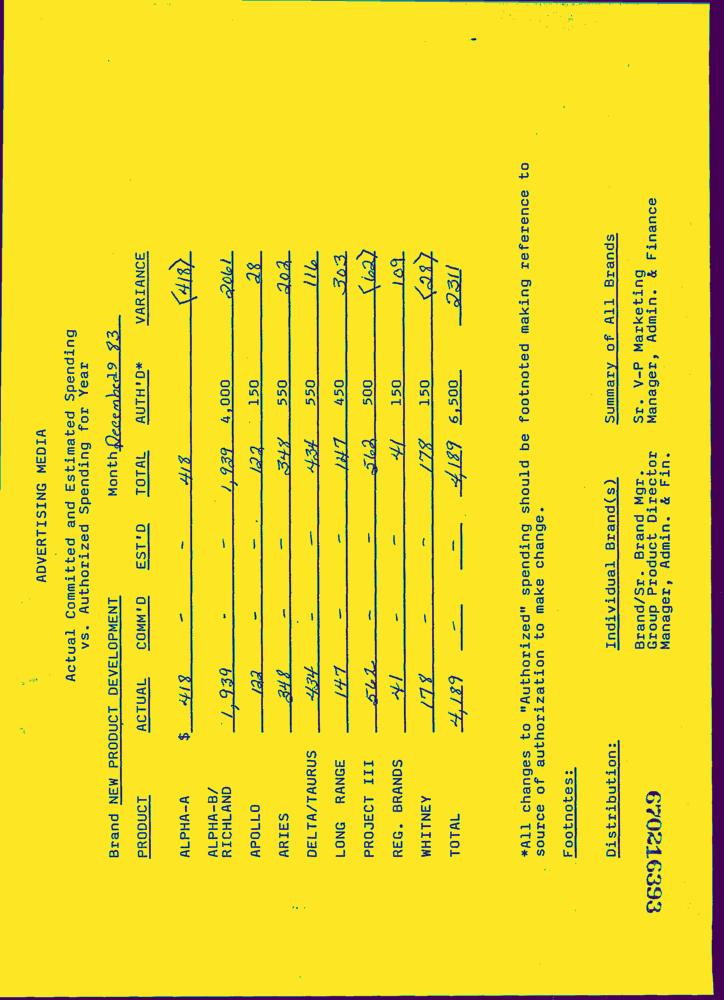 ADVERTISING MEDIA
Actual Committed and Estimated Spending
vs. Authorized Spending for Year
Brand NEW PRODUCT DEVELOPMENT Month December 1983
PRODUCT ACTUAL COMM'D EST'D TOTAL AUTH'D* VARIANCE
ALPHA-A $ 418 - - 418 (418)
ALPHA-B/
RICHLAND 1,939 - - 1,939 4,000 2061
APOLLO 122 - - 122 150 28
ARIES 348 - - 348 550 202
DELTA/TAURUS 434 - - 434 550 116
LONG RANGE 147 - - 147 450 303
PROJECT III 562 - - 562 500 (62)
REG. BRANDS 41 - - 41 150 109
WHITNEY 178 - - 178 150 (28)
TOTAL 4,189 - - 4,189 6,500 2311
*All changes to "Authorized" spending should be footnoted making reference to
source of authorization to make change.
Footnotes:
Distribution: Individual Brand(s) Summary of All Brands
Brand/Sr. Brand Mgr. Sr. V-P Marketing
Group Product Director Manager, Admin. & Finance
Manager, Admin. & Fin.
670216393